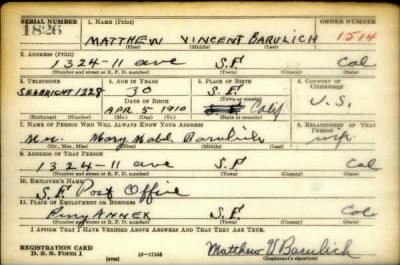 SERIAL NUMBER 1. NAME (Print) ORDER NUMBER
1826 MATTHEW VINCENT BARULICH 1514
(First) (Middle) (Last)
2. ADDRESS (Print)
1324-11 ave S.F. Cal
(Number and street or R. F. D. number) (Town) (County) (State)
3. TELEPHONE 4. AGE IN YEARS 5. PLACE OF BIRTH 6. COUNTRY OF CITIZENSHIP
SEABRIGHT 1228 30 S.F.
DATE OF BIRTH (Town or county)
APR. 5-1910 Calif U.S.
(Exchange) (Number) (Mo.) (Day) (Yr.) (State or country)
7. NAME OF PERSON WHO WILL ALWAYS KNOW YOUR ADDRESS 8. RELATIONSHIP OF THAT PERSON
Mrs. Mary Mabel Barulich wife
(Mr., Mrs., Miss) (First) (Middle) (Last)
9. ADDRESS OF THAT PERSON
1324-11 ave S.F. Cal
(Number and street or R. F. D. number) (Town) (County) (State)
10. EMPLOYER'S NAME
S.F. Post Office
11. PLACE OF EMPLOYMENT OR BUSINESS
ANNEX S.F. Cal
(Number and street or R. F. D. number) (Town) (County) (State)
I AFFIRM THAT I HAVE VERIFIED ABOVE ANSWERS AND THAT THEY ARE TRUE.
REGISTRATION CARD
D. S. S. FORM 1 (over) 16-17105 Matthew V Barulich
(Registrant's signature)